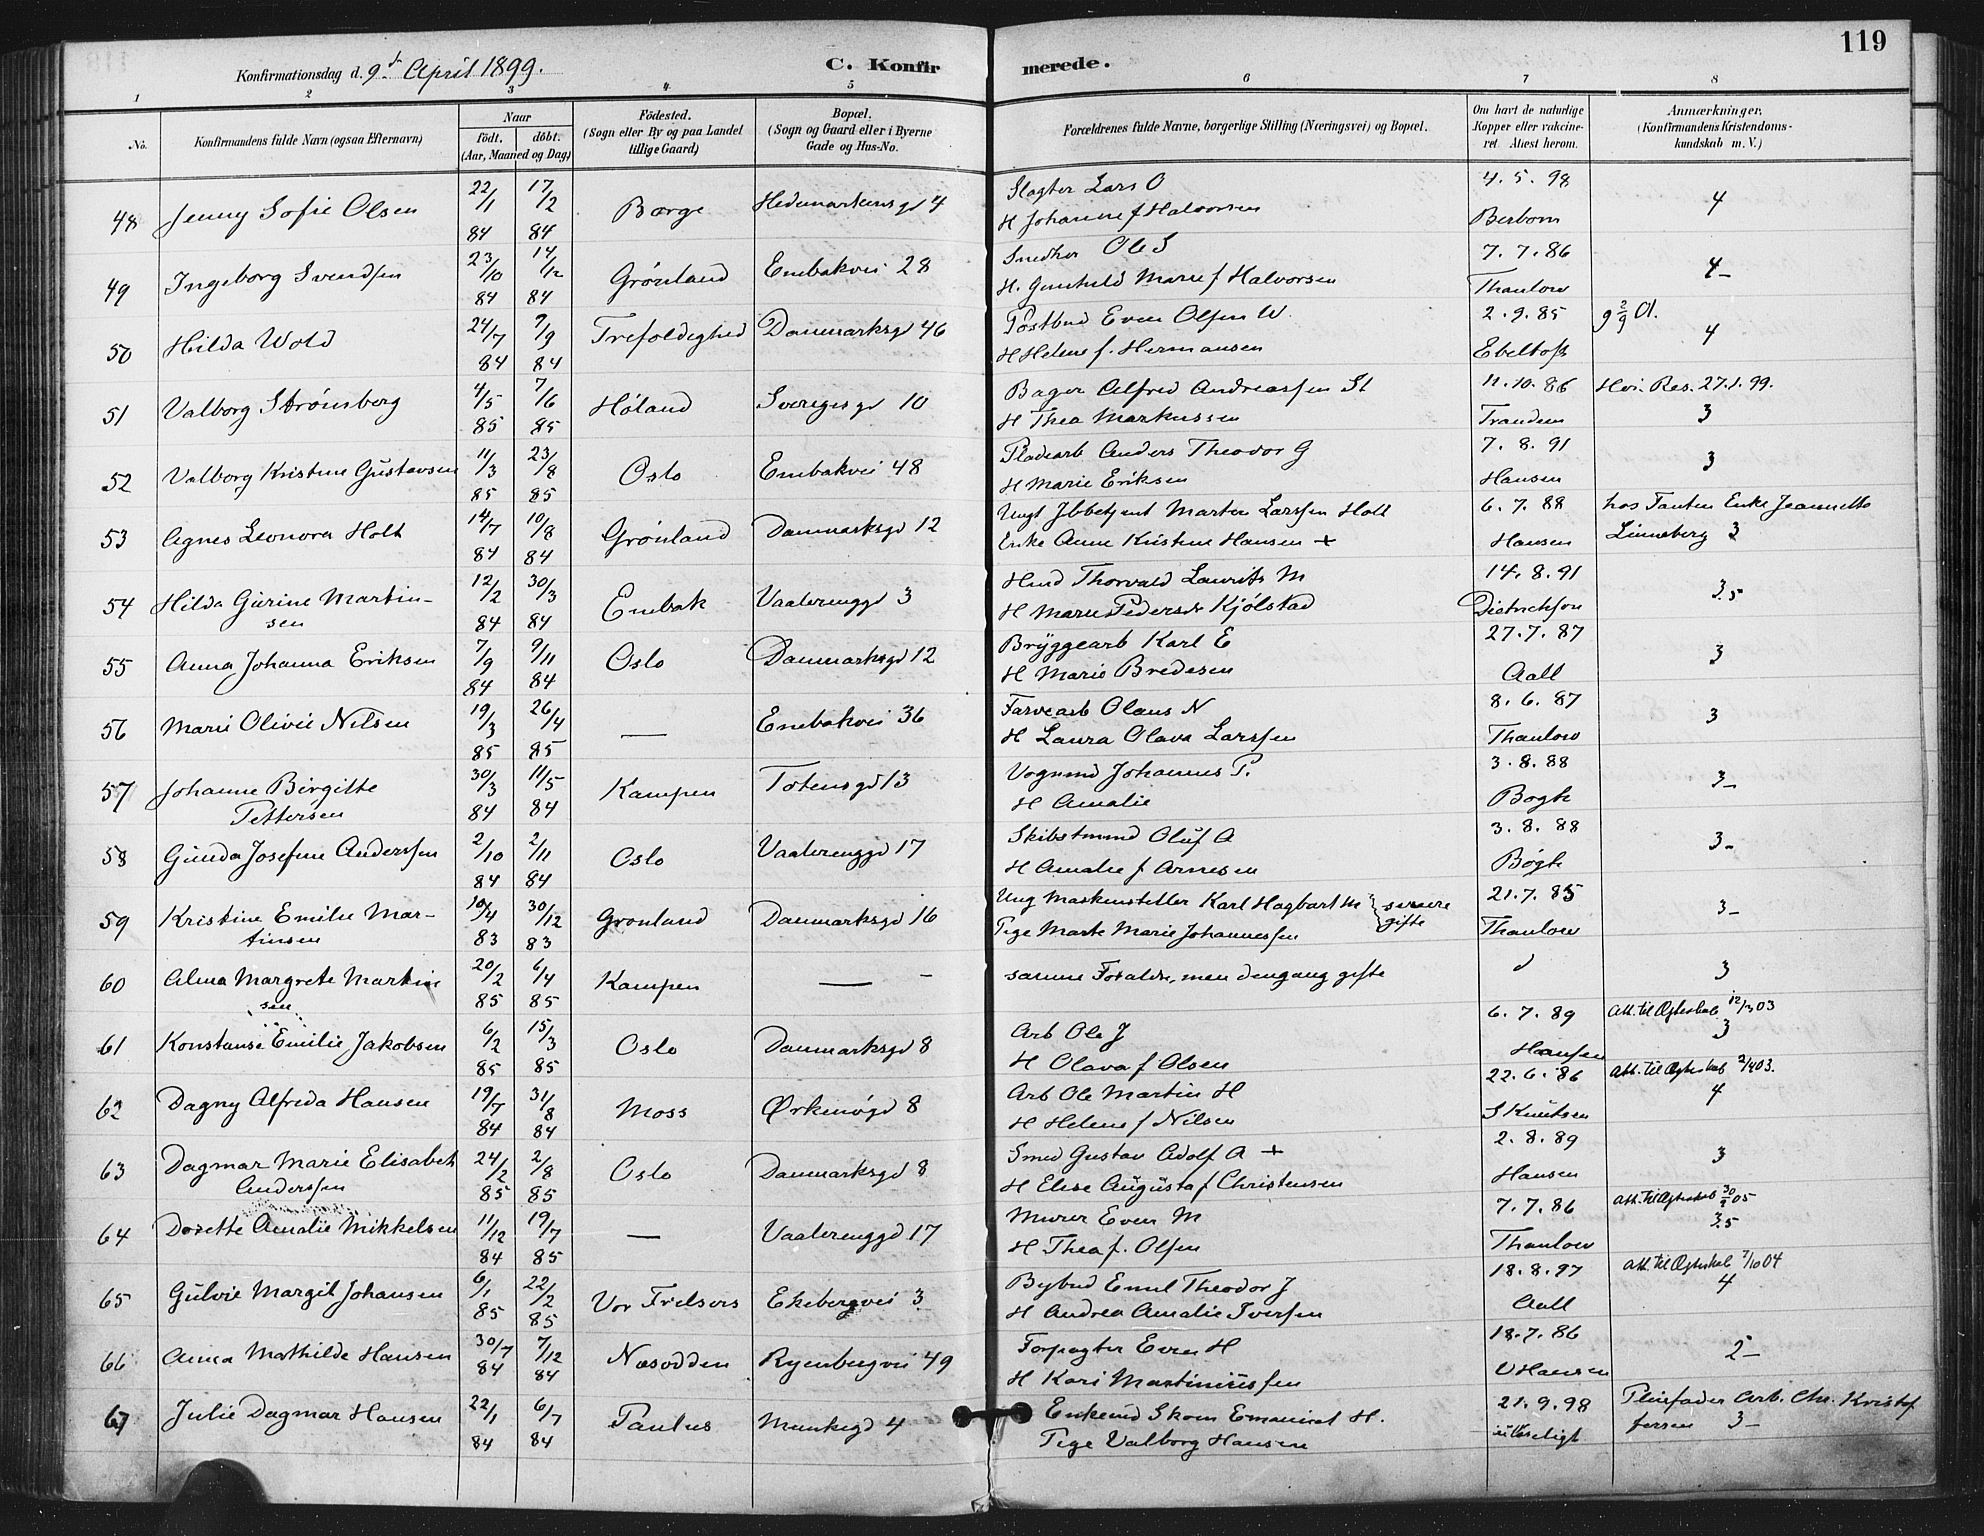 119
Konfirmationsdag d. 9de April 1899.
C. Konfirmerede.
1 2 3 4 5 6 7 8
No. Konfirmandens fulde Navn (ogsaa Efternavn) Naar født. døbt. (Aar, Maaned og Dag) Fødested. (Sogn eller By og paa Landet tillige Gaard) Bopæl. (Sogn og Gaard eller i Byerne Gade og Hus-No. Forældrenes fulde Navne, borgerlige Stilling (Næringsvei) og Bopæl. Om havt de naturlige Kopper eller vakcineret. Attest herom. Anmærkninger. (Konfirmandens Kristendomskundskab m. V.)
48 Jenny Sofie Olsen 22/1 84 17/2 84 Borge Hedemarkensgd 4 Slagter Lars O 4.5.98 4
H Johanne f Halvorsen Berbom
49 Ingeborg Svendsen 23/10 84 14/12 84 Grönland Enebakvei 28 Snedker Ole S 7.7.86 4-
H. Gunhild Marie f Halvorsen Thaulow
50 Hilda Wold 24/7 84 7/9 84 Trefoldighed Danmarksgd 46 Postbud Even Olsen W. 2.9.85 4
H Helene f. Hermansen Ebeltoft
51 Valborg Strömsborg 4/5 85 7/6 85 Höland Sverigesgd 10 Bager Alfred Andreassen St 11.10.86 Hvi. Res. 27.1.99.
H Thea Markussen Trandem 3
52 Valborg Kristine Gustavsen 11/3 85 23/8 85 Oslo Enebakvei 48 Pladearb Anders Theodor G 7.8.91 3
H Marie Eriksen Hansen
53 Agnes Leonora Holt 14/7 84 10/8 84 Grönland Danmarksgd 12 Ungk Marten Larssen Holt 6.7.88 hos Tanten Enke Jeannette
Enke Anne Kristine Hansen + Hansen Linneberg 3
54 Hilda Gurine Martinsen 12/2 84 30/3 84 Enebak Vaalerenggd 3 Hmd Thorvald Laurits M 14.8.91 3.5
H Marie Pedersdr Kjölstad Dietrichson
55 Anna Johanna Eriksen 7/9 84 9/11 84 Oslo Danmarksgd 12 Bryggearb Karl E 27.7.87 3
H Marie Bredesen Aall
56 Marie Olivie Nilsen 19/3 85 26/4 85 — Enebakvei 36 Farvearb Olaus N 8.6.87 3
H Laura Olava Larssen Thaulow
57 Johanne Birgitte Pettersen 30/3 84 11/5 84 Kampen Totensgd 13 Vognmd Johannes P. 3.8.88 3-
H Amalie Bogh
58 Gunda Josefine Anderssen 2/10 84 2/11 84 Oslo Vaalerenggd 17 Skibstmmd Oluf A 3.8.88 3-
H Amalie f Arnesen Bögh
59 Kristine Emilie Martinsen 10/4 83 30/12 83 Gronland Danmarksgd 16 Ung Maskinsteller Karl Hagbart M } senere gifte 21.7.85 3-
Pige Marte Marie Johannessen Thaulow
60 Alma Margrete Martinsen 20/2 85 6/4 85 Kampen — - samme Foraldre, men dengang gifte d 3
61 Konstanse Emilie Jakobsen 6/2 85 15/3 85 Oslo Danmarksgd 8 Arb Ole J 6.7.89 Att. til Ægteskab 12/3 03
H Olava f Olsen Hansen 3
62 Dagny Alfreda Hansen 19/7 84 31/8 84 Moss Ørkenögd 8 Arb Ole Martin H 22.6.86 Att. til Ægteskab 2/4 03.
H Helene f Nilsen S Knutsen 4
63 Dagmar Marie Elisabeth Anderssen 24/2 85 2/8 85 Oslo Danmarksgd 8 Smed Gustav Adolf A + 2.8.89 3
H Elise Augusta f Christensen Hansen
64 Dorette Amalie Mikkelsen 11/12 84 19/7 85 — Vaalerenggd 17 Murer Even M 7.7.86 Att. til Ægteskab 30/3 05
H Thea f. Olsen Thaulow 3.5
65 Gulvie Margit Johansen 6/1 85 22/2 85 Vor Frelsers Ekebergvei 3 Bybud Emil Theodor J 18.8.97 Att. til Ægteskab 7/10 04
H Andrea Amalie Iversen Aall 4
66 Anna Mathilde Hansen 30/7 84 7/12 84 Næsodden Ryenbergvei 49 Forpagter Even H 18.7.86 2-
H Kari Martiniussen O Hansen
67 Julie Dagmar Hansen 22/1 84 6/7 84 Paulus Munkegd 4 Enkemd Skom Emanuel H. 21.9.98 Pleiefader Arb. Chr. Kristoffersen 3-
Pige Valborg Hansen ulæseligt